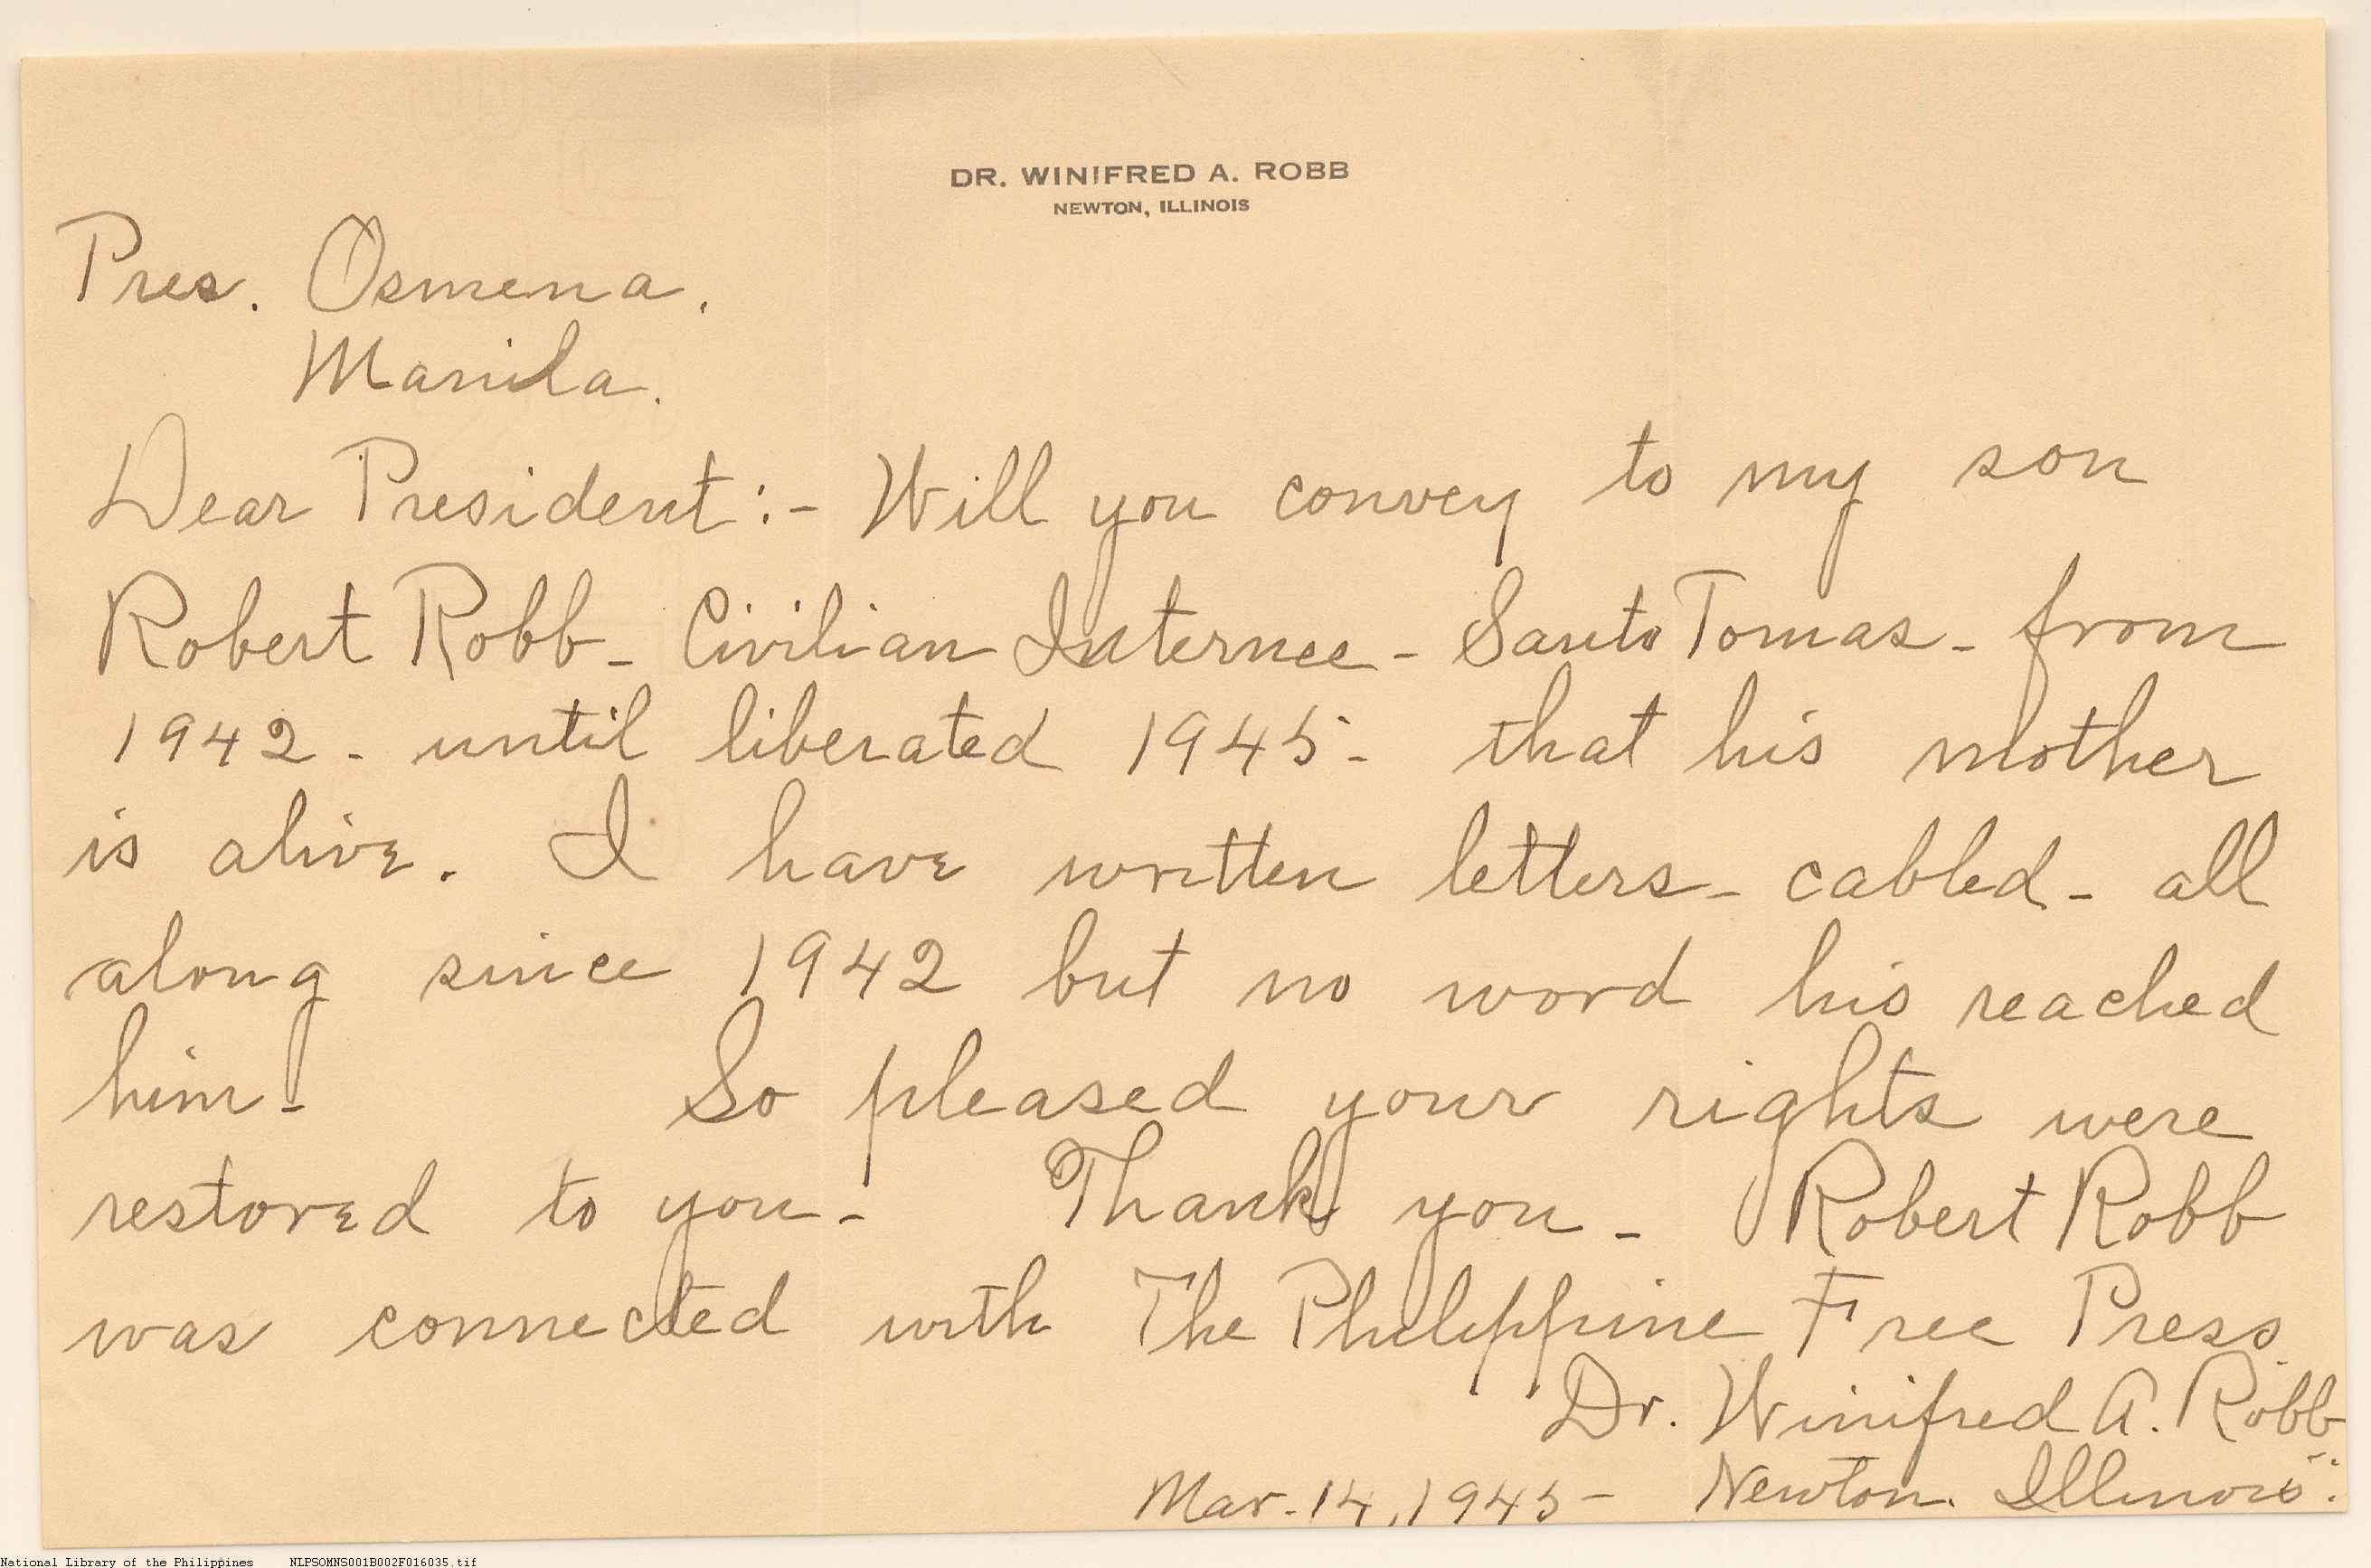 DR. WINIFRED A. ROBB
NEWTON, ILLINOIS
Pres. Osmena.
Manila.
Dear President:- Will you convey to my son
Robert Robb - Civilian Internee - Santo Tomas - from
1942 - until liberated 1945 - that his mother
is alive. I have written letters - cabled - all
along since 1942 but no word his reached
him - So pleased your rights were
restored to you - Thank you - Robert Robb
was connected with The Philippine Free Press.
Dr. Winifred A. Robb
Mar. 14, 1945 - Newton. Illinois.
National Library of the Philippines NLPSOMNS001B002F016035.tif